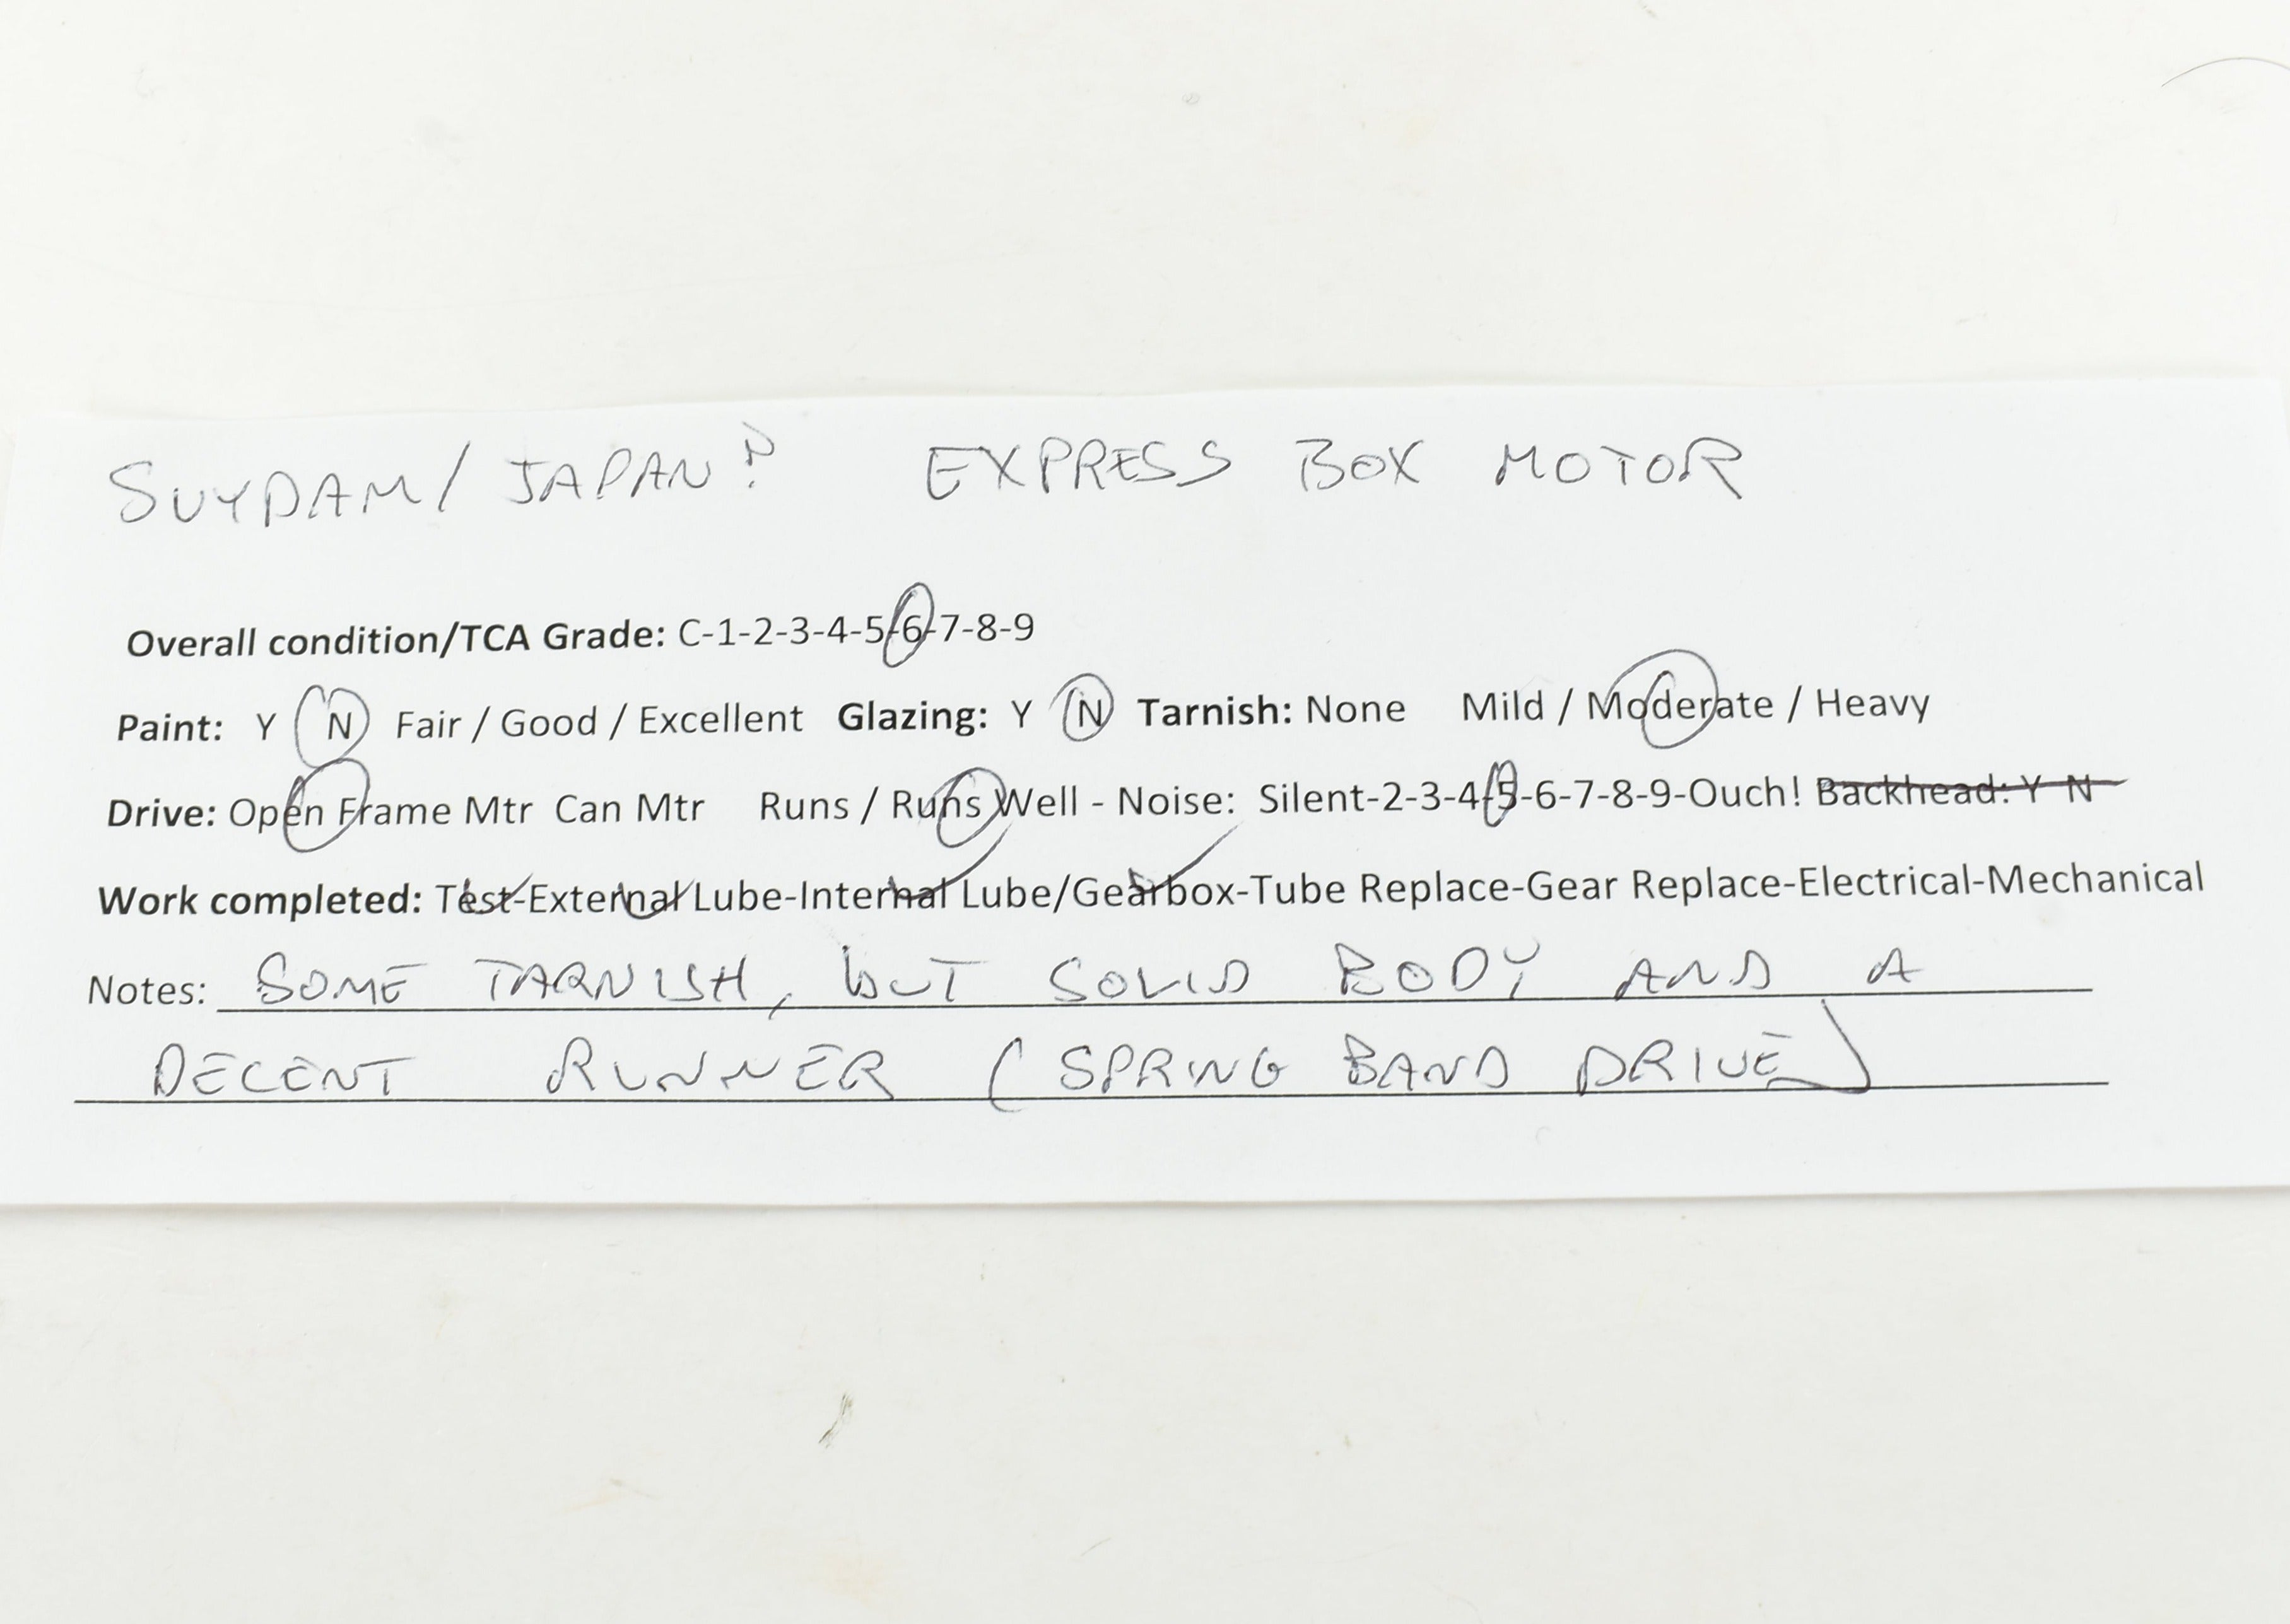 SUYDAM/ JAPAN? EXPRESS BOX MOTOR
Overall condition/TCA Grade: C-1-2-3-4-5-6-7-8-9
Paint: Y N Fair / Good / Excellent Glazing: Y N Tarnish: None Mild / Moderate / Heavy
Drive: Open Frame Mtr Can Mtr Runs / Runs Well - Noise: Silent-2-3-4-5-6-7-8-9-Ouch! Backhead: Y N
Work completed: Test-External Lube-Internal Lube/Gearbox-Tube Replace-Gear Replace-Electrical-Mechanical
Notes: SOME TARNISH, buT SOLID BODY AND A
DECENT RUNNER (SPRING BAND DRIVE)